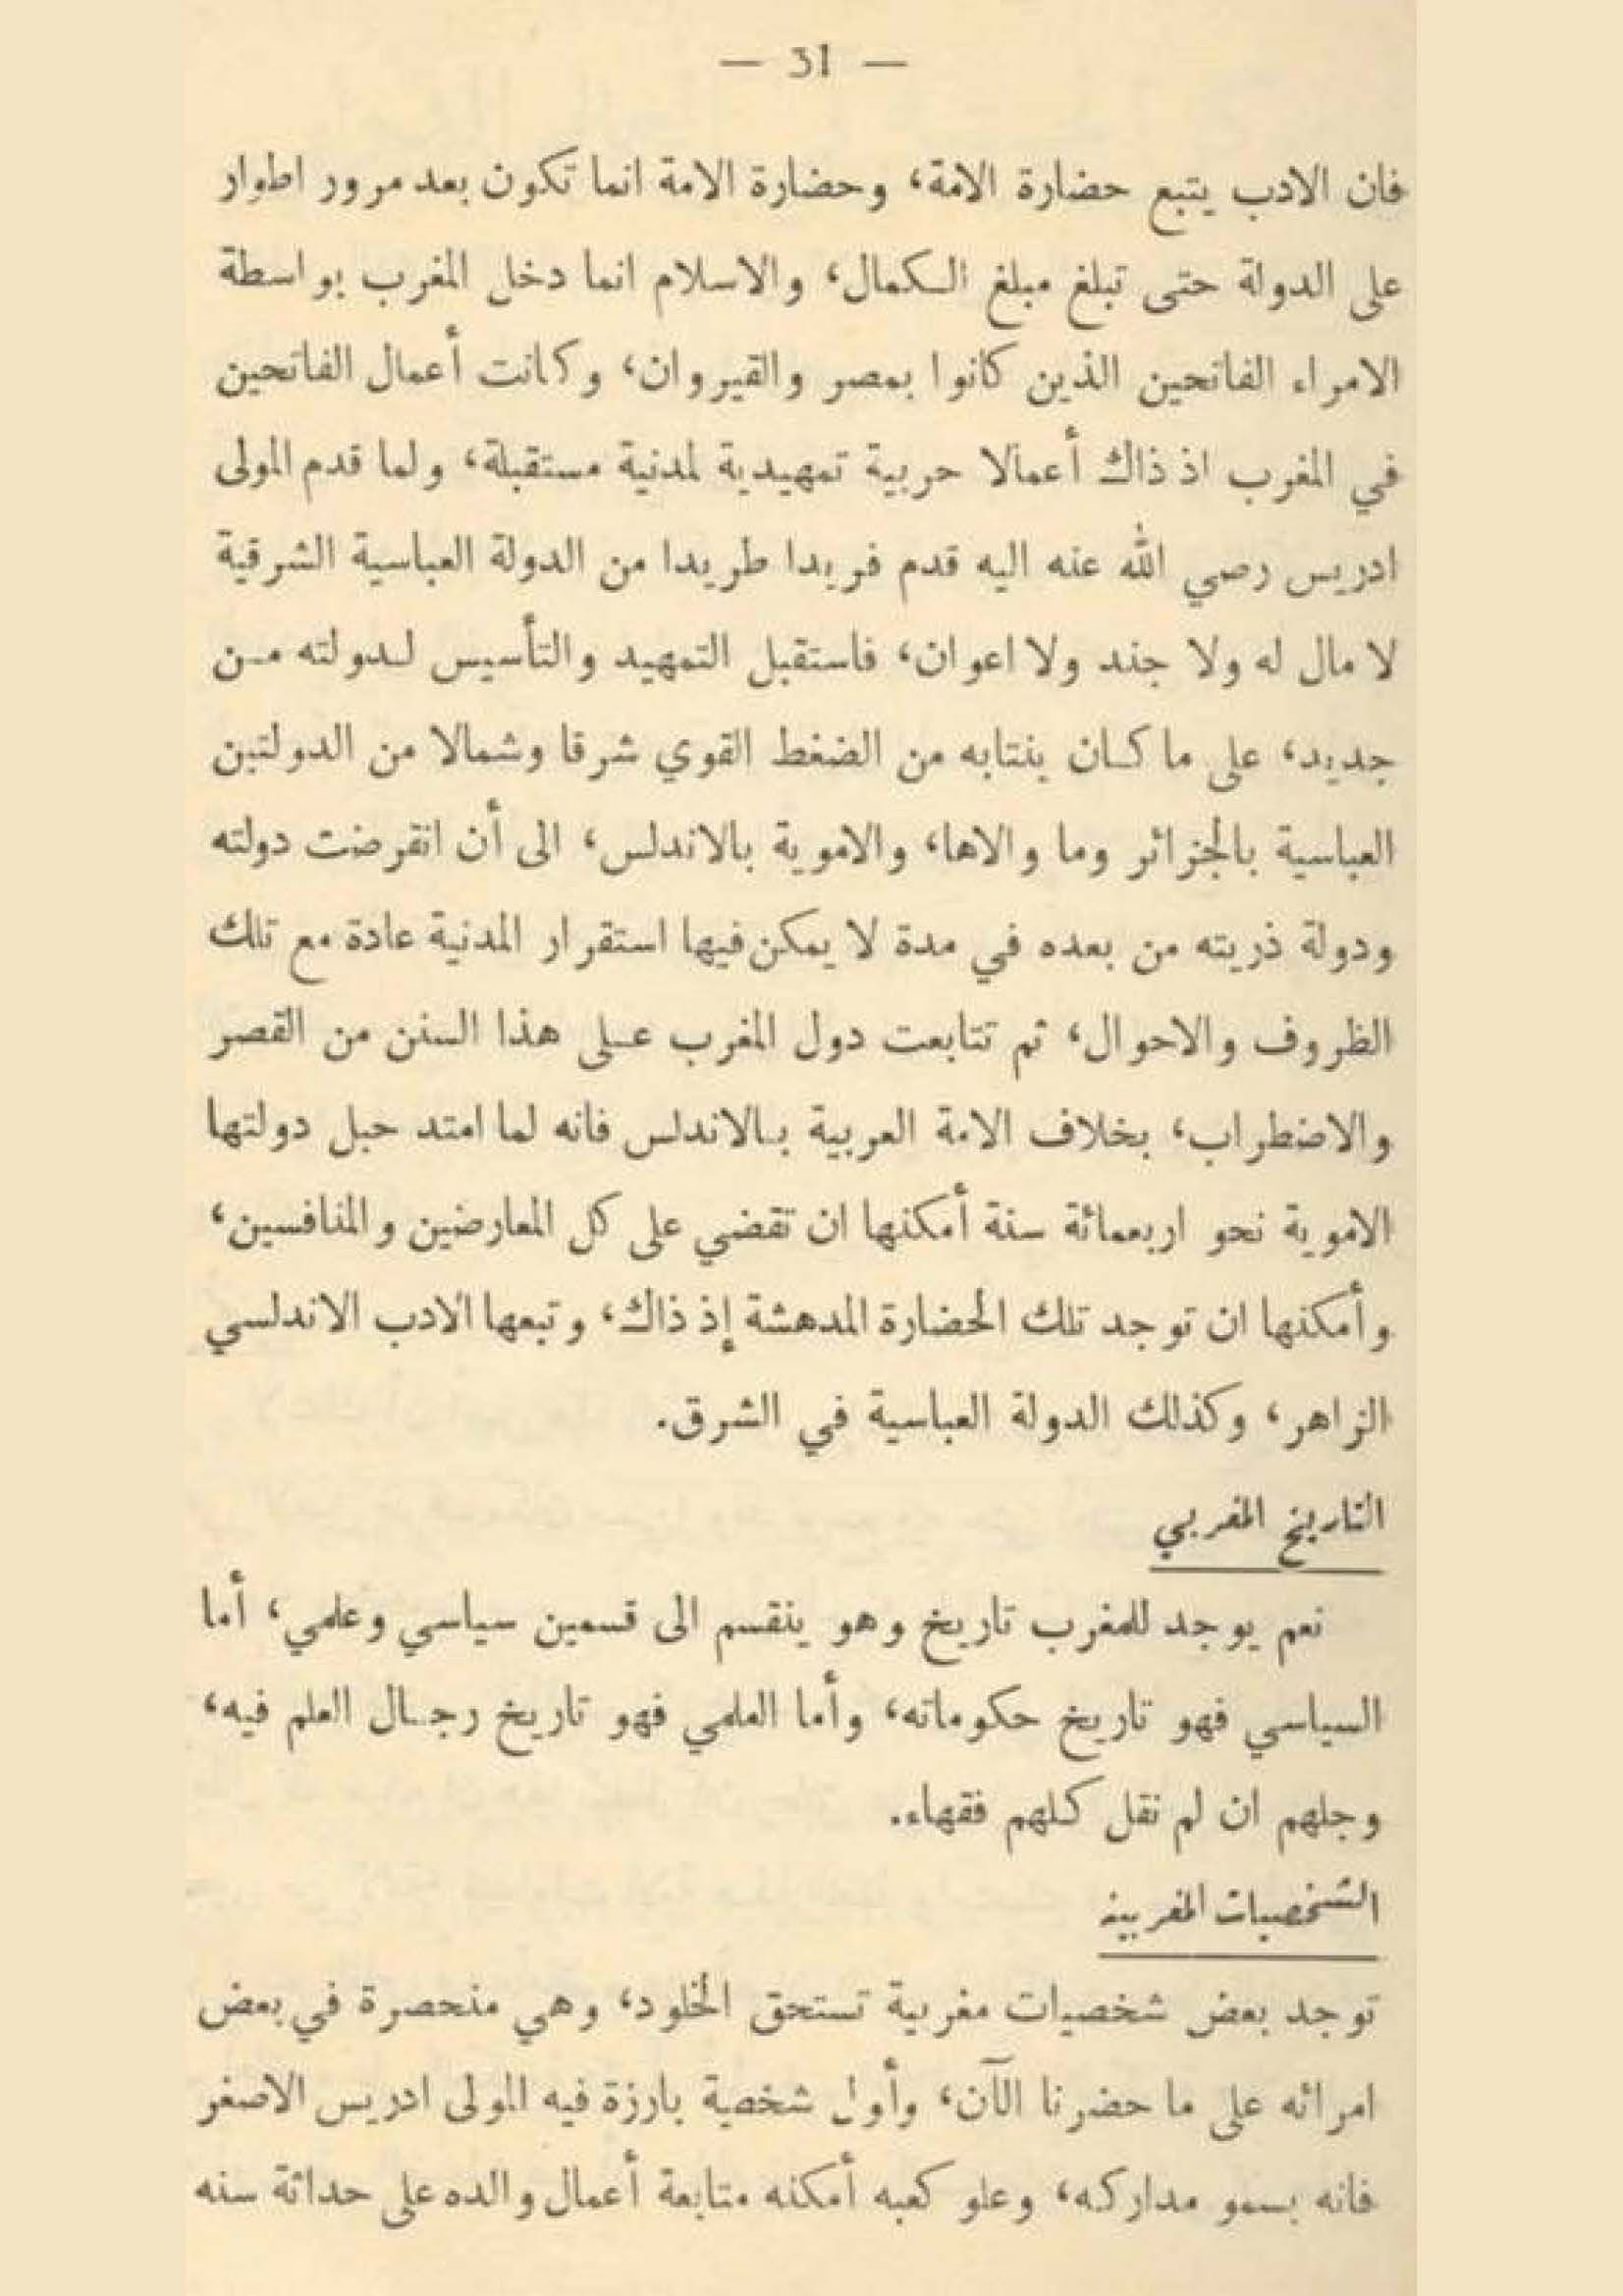 — 31 —
فان الادب يتبع حضارة الامة، وحضارة الامة انما تكون بعد مرور اطوار
على الدولة حتى تبلغ مبلغ الكمال، والاسلام انما دخل المغرب بواسطة
الامراء الفاتحين الذين كانوا بمصر والقيروان، وكانت أعمال الفاتحين
في المغرب اذ ذاك أعمالا حربية تمهيدية لمدنية مستقبلة، ولما قدم المولى
ادريس رصي الله عنه اليه قدم فريدا طريدا من الدولة العباسية الشرقية
لا مال له ولا جند ولا اعوان، فاستقبل التمهيد والتأسيس لدولته من
جديد، على ما كان ينتابه من الضغط القوي شرقا وشمالا من الدولتين
العباسية بالجزائر وما والاها، والاموية بالاندلس، الى أن انقرضت دولته
ودولة ذريته من بعده في مدة لا يمكن فيها استقرار المدنية عادة مع تلك
الظروف والاحوال، ثم تتابعت دول المغرب على هذا السنن من القصر
والاضطراب، بخلاف الامة العربية بالاندلس فانه لما امتد حبل دولتها
الاموية نحو اربعمائة سنة أمكنها ان تقضي على كل المعارضين والمنافسين،
وأمكنها ان توجد تلك الحضارة المدهشة إذ ذاك، وتبعها الادب الاندلسي
الزاهر، وكذلك الدولة العباسية في الشرق.
التاريخ المغربي
نعم يوجد للمغرب تاريخ وهو ينقسم الى قسمين سياسي وعلمي، أما
السياسي فهو تاريخ حكوماته، وأما العلمي فهو تاريخ رجال العلم فيه،
وجلهم ان لم نقل كلهم فقهاء.
الشخصيات المغربية
توجد بعض شخصيات مغربية تستحق الخلود، وهي منحصرة في بعض
امرائه على ما حضرنا الآن، وأول شخصية بارزة فيه المولى ادريس الاصغر
فانه بسمو مداركه، وعلو كعبه أمكنه متابعة أعمال والده على حداثة سنه